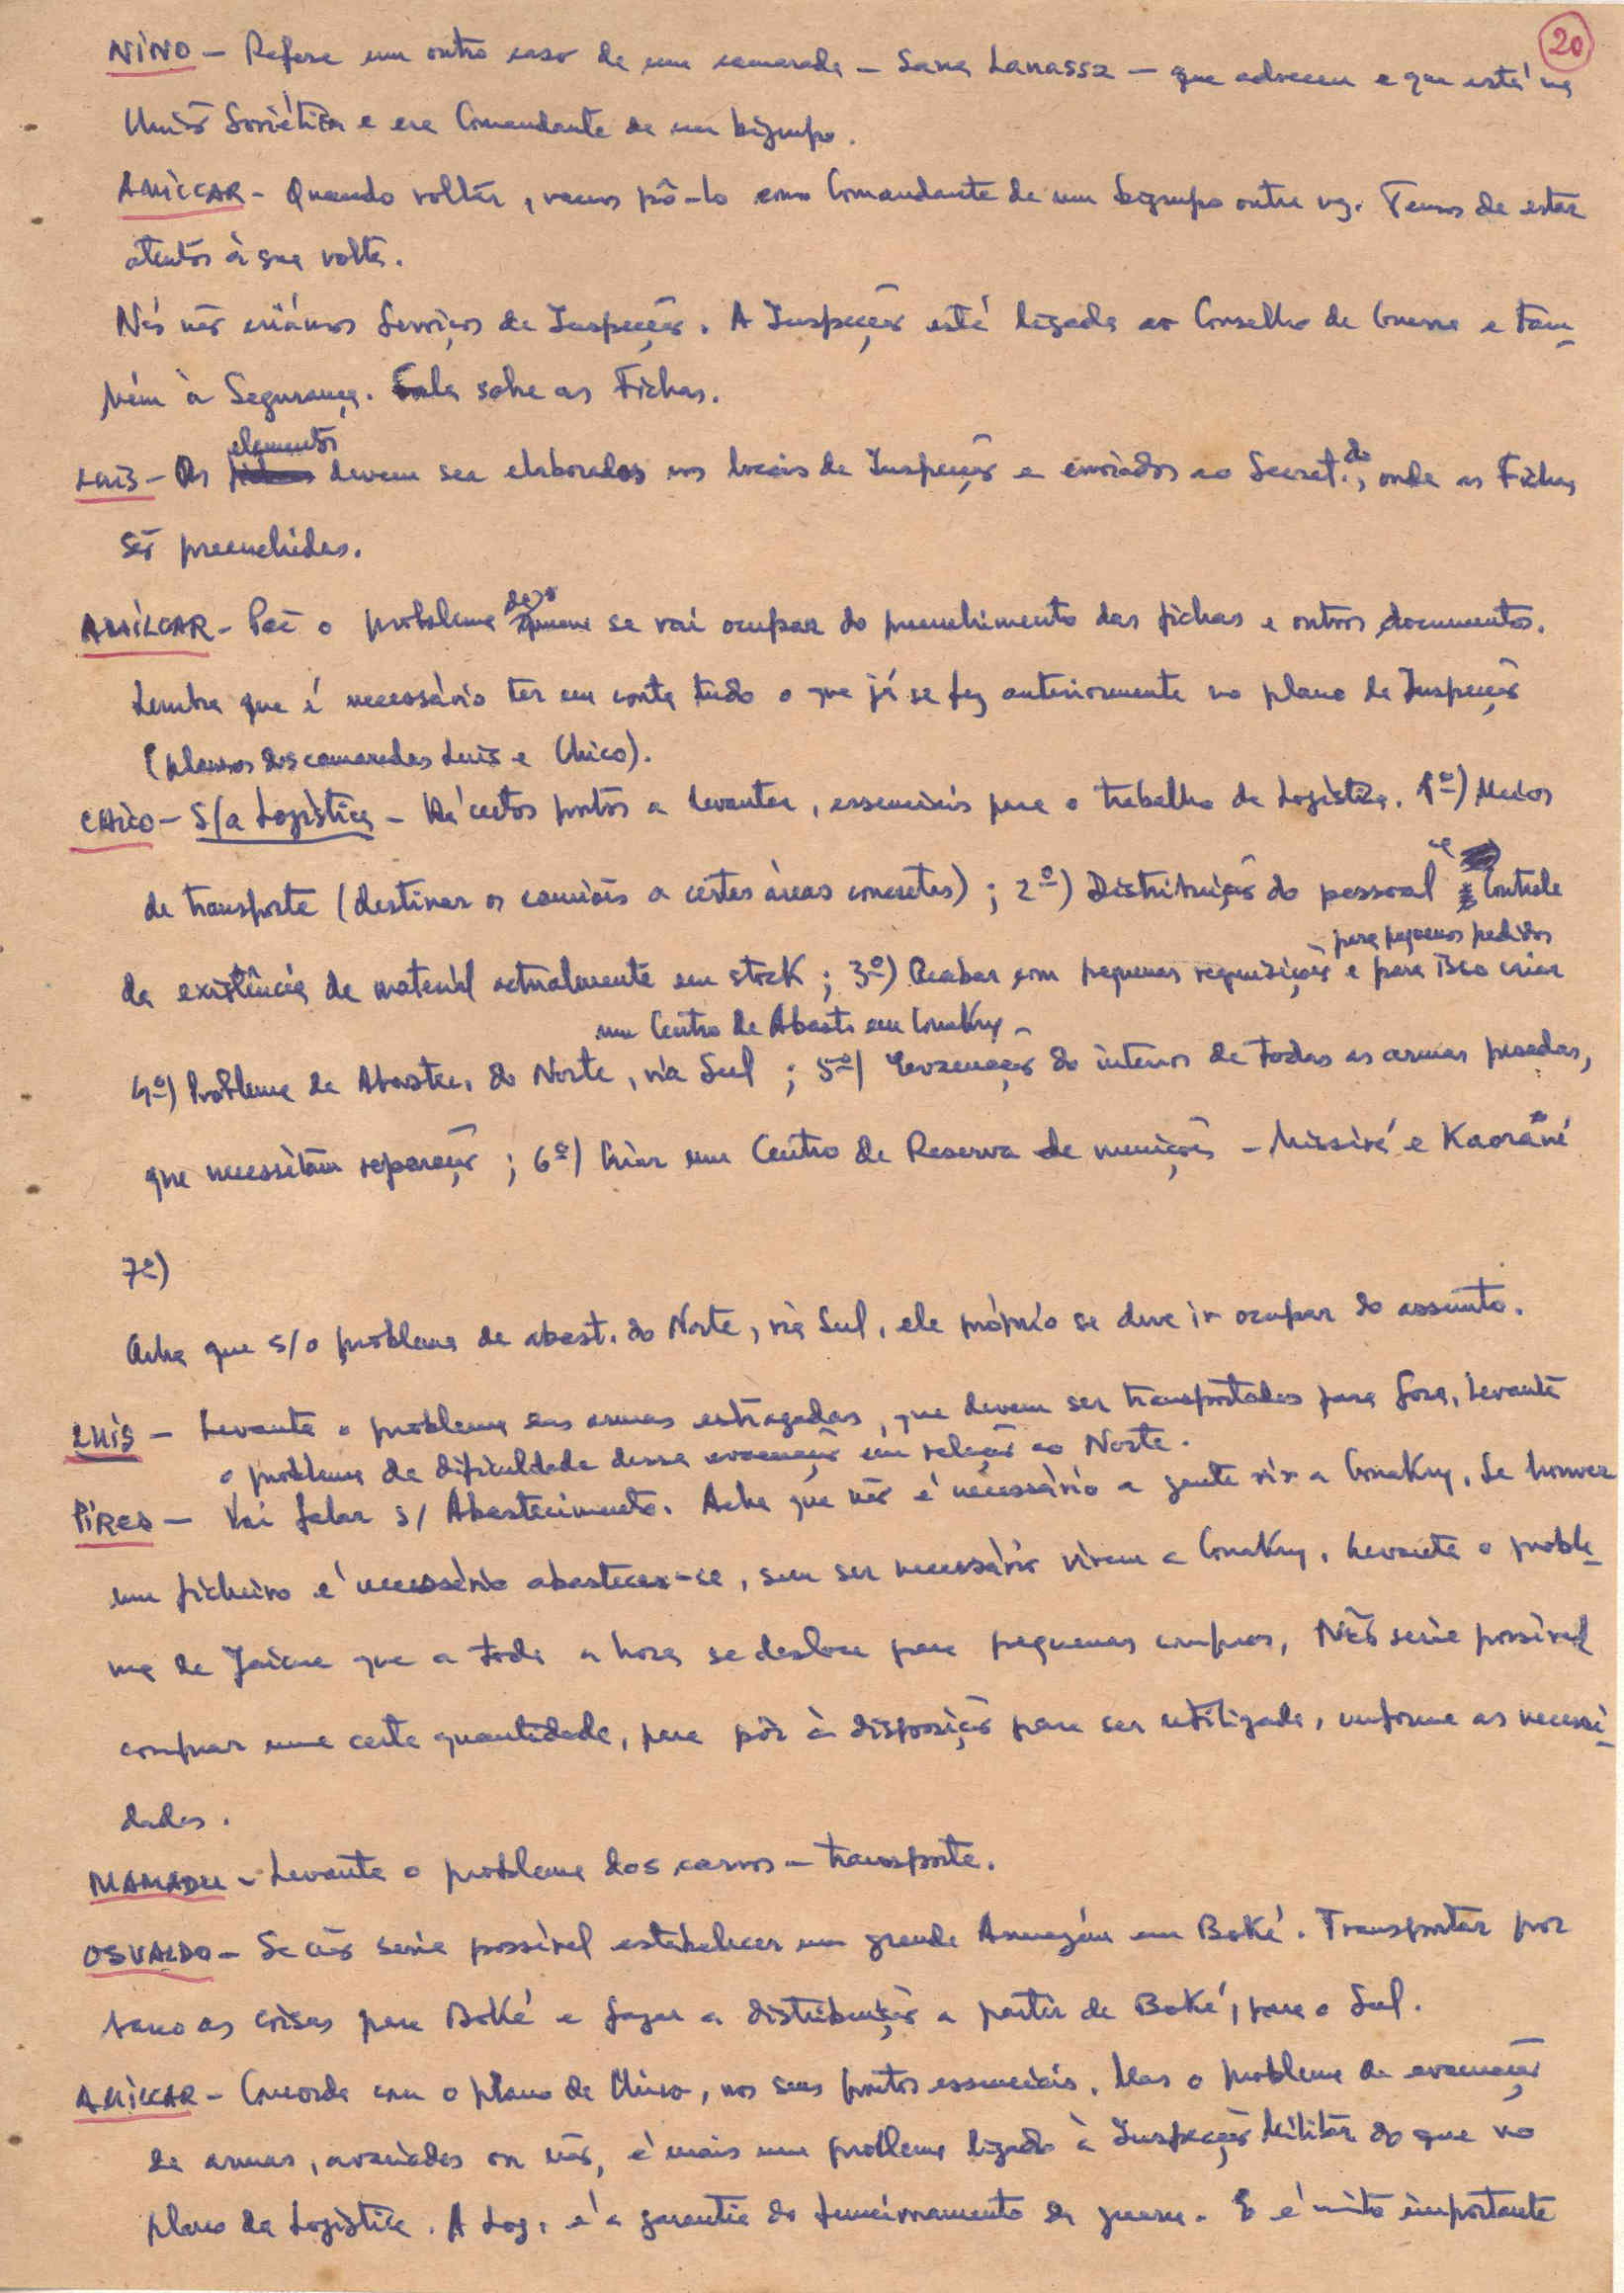 20
NINO - Refere um outro caso de um camarada - Sana Lanassa - que adoeceu e que está na
União Soviética e era Comandante de um bigrupo.
AMILCAR - Quando voltar, vamos pô-lo como Comandante de um bigrupo outra vez. Temos de estar
atentos à sua volta.
Nós não criámos Serviços de Inspecção. A Inspecção está ligada ao Conselho de Guerra e tam-
bém à Segurança. Fala sobre as Fichas.
elementos
LUIS - Os devem ser elaborados nos locais de Inspecção e enviados ao Secret.do, onde as Fichas
são preenchidas.
AMILCAR - Põe o problema de se vai ocupar do preenchimento das fichas e outros documentos.
Lembra que é necessário ter em conta tudo o que já se fez anteriormente no plano da Inspecção
(planos dos camaradas Luis e Chico).
CHICO - S/a Logística - Há certos pontos a levantar, essenciais para o trabalho da Logística. 1º) Meios
de transporte (destinar os camiões a certas áreas concretas); 2º) Distribuição do pessoal e Controle
para pequenos pedidos
da existência de material actualmente em stock; 3º) Acabar com pequenas requisições e para isso criar
um Centro de Abast. em Conakry -
4º) Problema de Abastec. do Norte, via Sul; 5º) Evacuação do interior de todas as armas pesadas,
que necessitam reparação; 6º) Criar um Centro de Reserva de munições - Missirá e Kaorané
7º)
Acha que s/o problema de abast. do Norte, via Sul, ele próprio se deve ir ocupar do assunto.
LUIS - Levanta o problema das armas estragadas, que devem ser transportadas para fora. Levanta
o problema da dificuldade dessa evacuação em relação ao Norte.
PIRES - Vai falar s/ Abastecimento. Acha que não é necessário a gente vir a Conakry. Se houver
um ficheiro é necessário abastecer-se, sem ser necessário virem a Conakry. Levanta o proble-
ma de que a toda a hora se desloca para pequenas compras. Não seria possível
comprar uma certa quantidade, para pôr à disposição para ser utilizada, conforme as necessi-
dades.
MAMADU - Levanta o problema dos carros - transporte.
OSVALDO - Se não seria possível estabelecer um grande Armazém em Boké. Transportar por
barco as coisas para Boké e fazer a distribuição a partir de Boké, para o Sul.
AMILCAR - Concorda com o plano de Chico, nos seus pontos essenciais. Mas o problema da evacuação
de armas, avariadas ou não, é mais um problema ligado à Inspecção Militar do que no
plano da Logística. A Log. é a garantia do funcionamento da guerra. E é muito importante